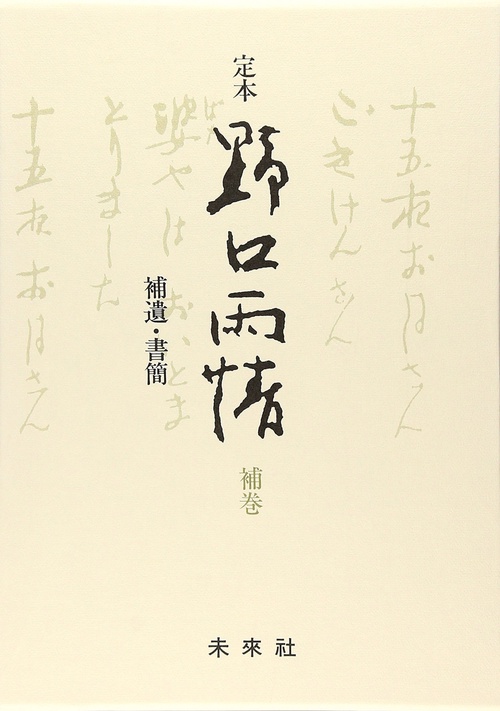 十五夜お月さん
ごきけんさん
婆やは おいとま
ばあ
とりました
十五夜お月さん
定本
野口雨情
補遺・書簡
補巻
未來社